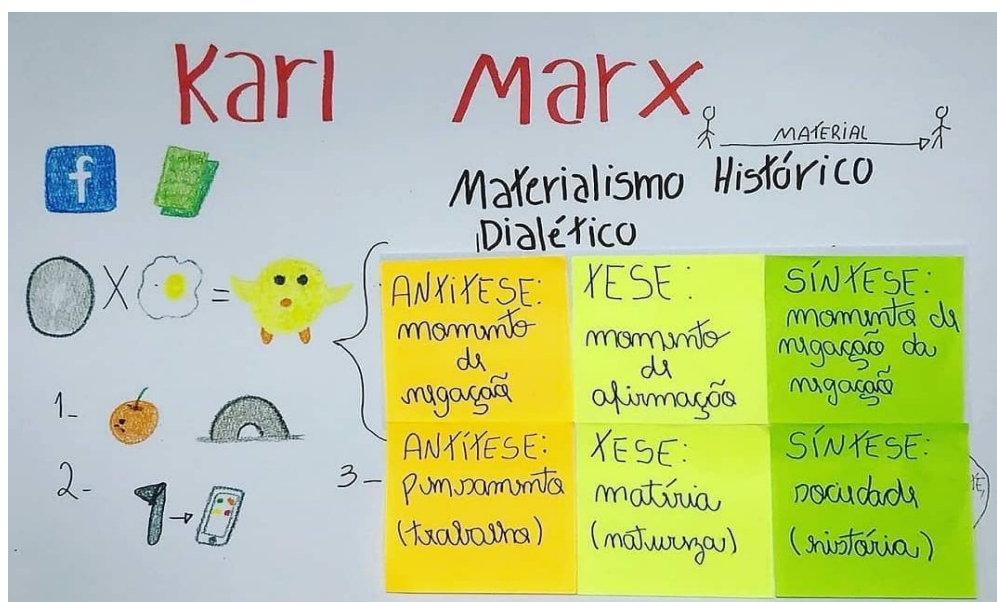 Karl Marx
MATERIAL
Materialismo Histórico
Dialético
f
X =
ANTÍTESE:
momento
de
negação
TESE:
momento
de
afirmação
SÍNTESE:
momento da
negação da
negação
1-
2-
3-
ANTÍTESE:
pensamento
(trabalho)
TESE:
matéria
(natureza)
SÍNTESE:
sociedade
(história)